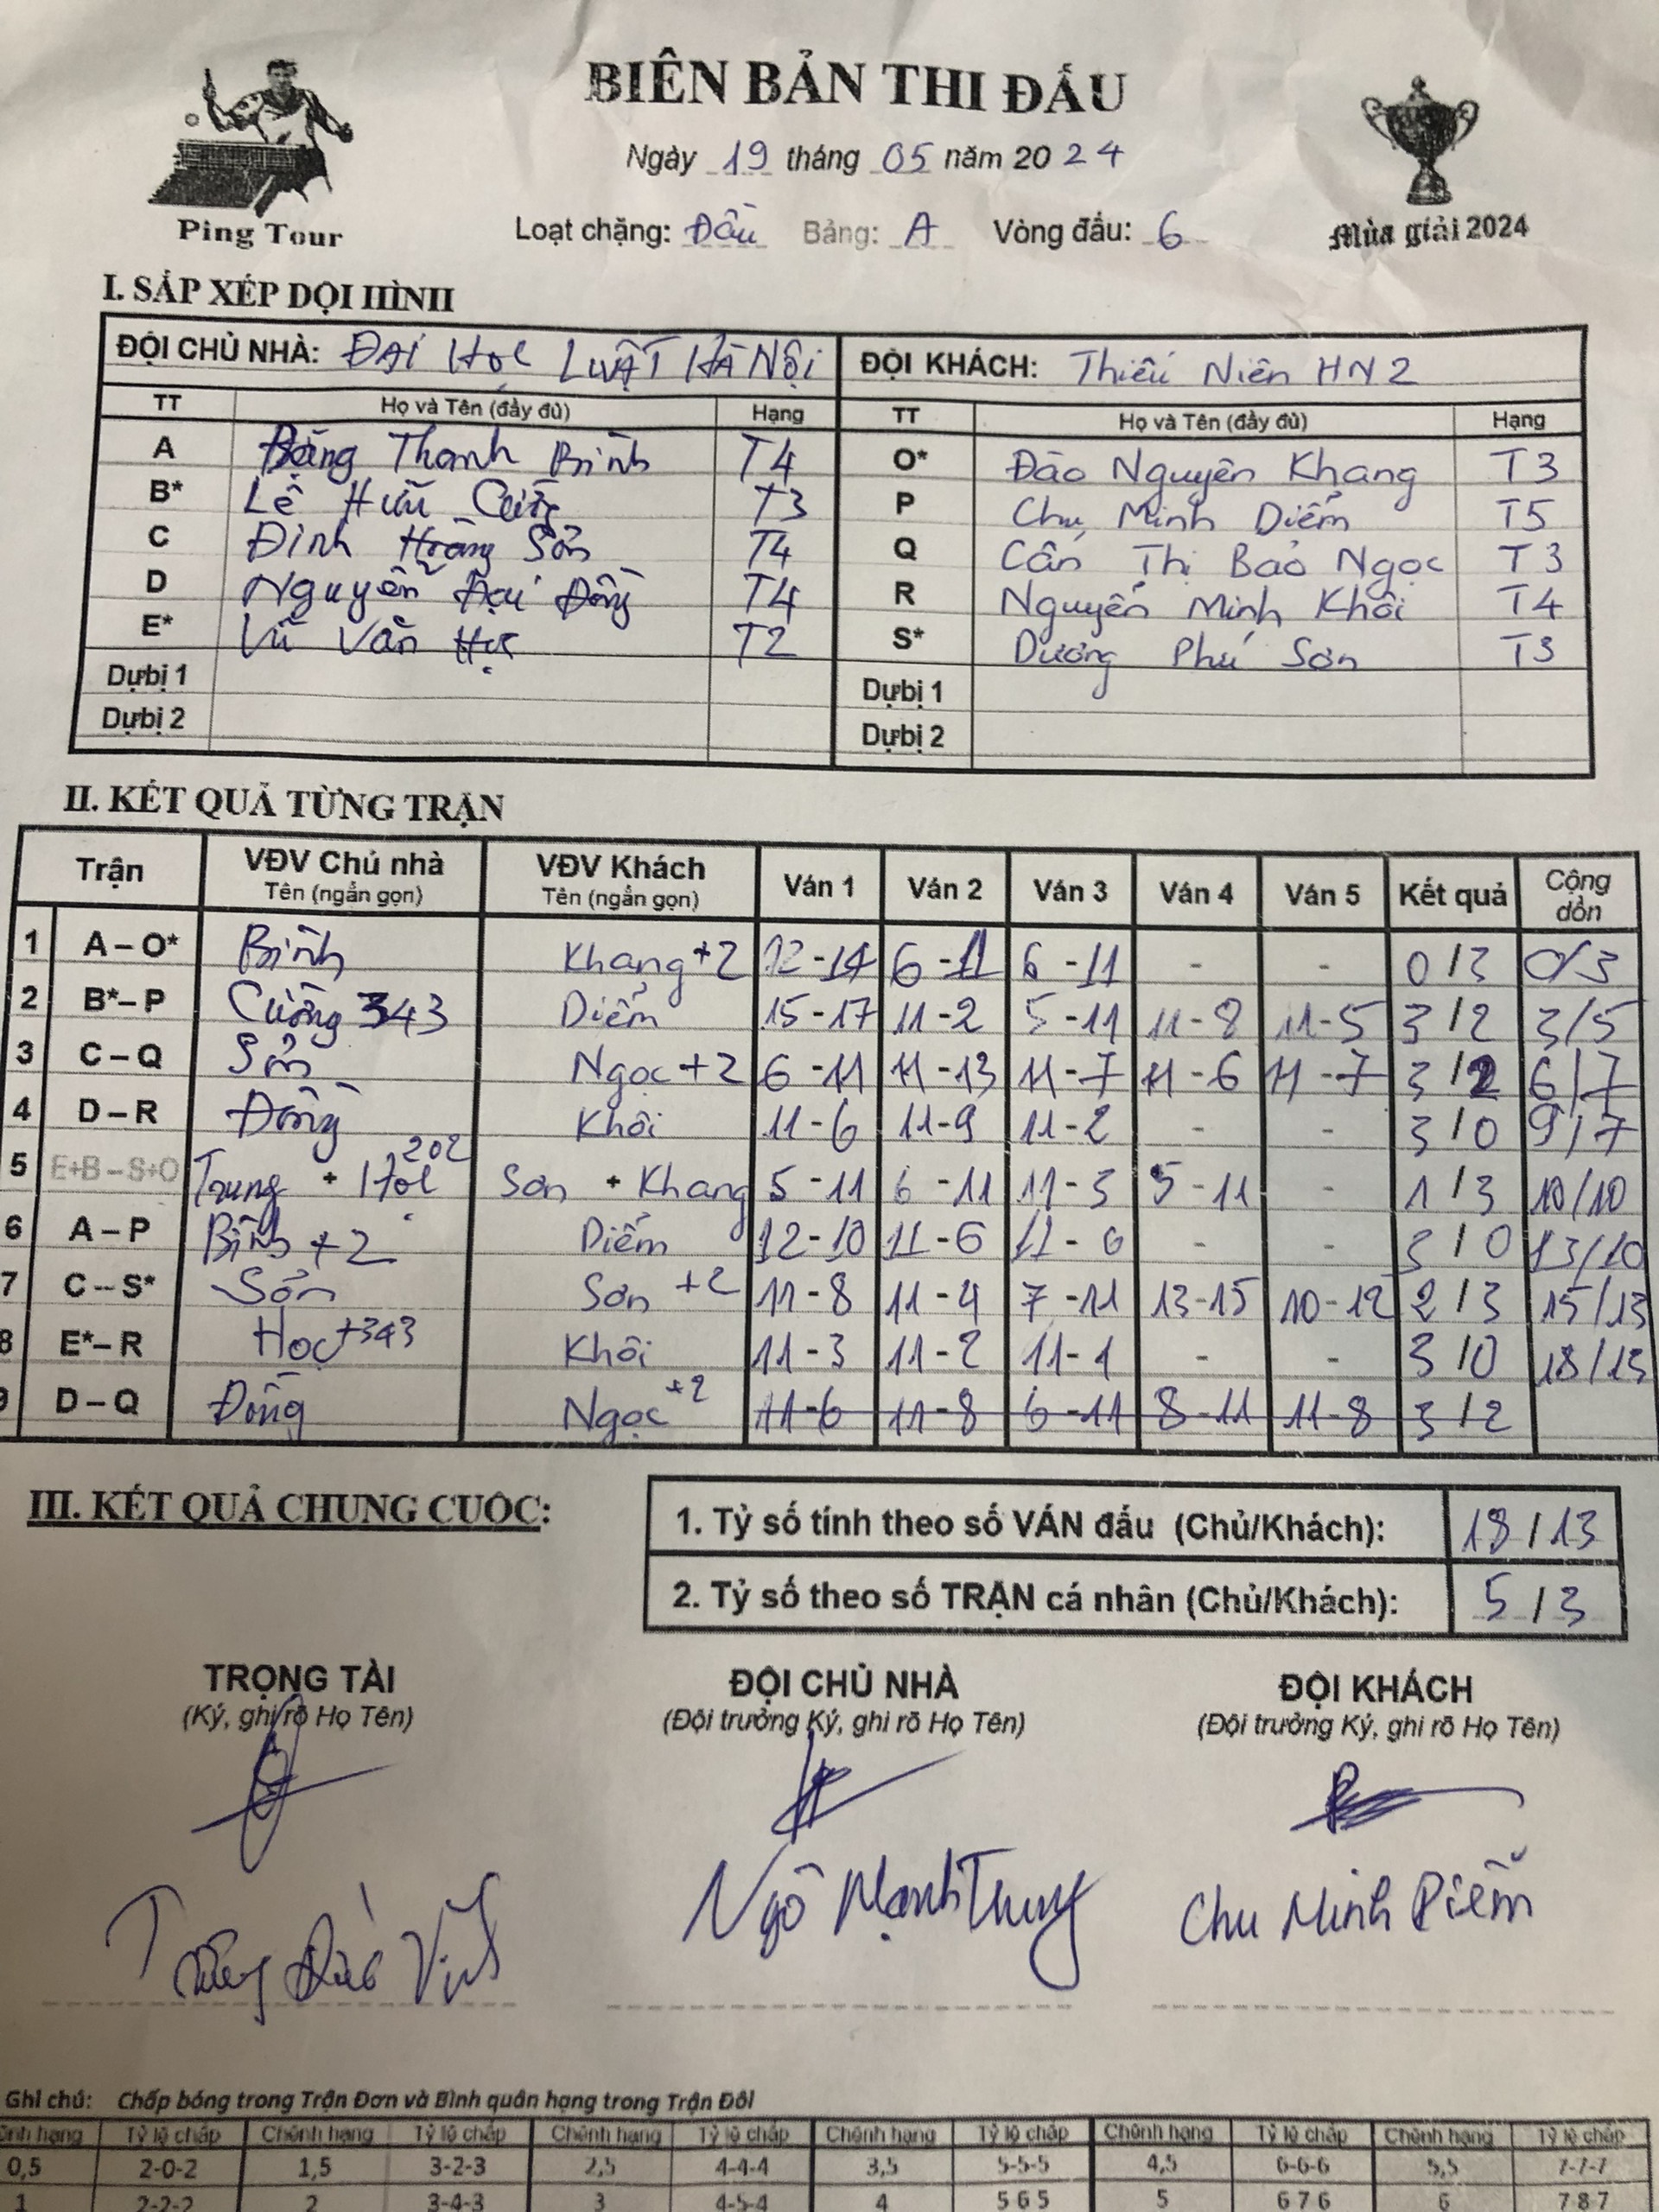 BIÊN BẢN THI ĐẤU
Ngày 19 tháng 05 năm 2024
Ping Tour
Loạt chặng: Đầu Bảng: A Vòng đấu: 6
Mùa giải 2024
I. SẮP XẾP ĐỘI HÌNH
ĐỘI CHỦ NHÀ: ĐẠI HỌC LUẬT HÀ NỘI ĐỘI KHÁCH: Thiếu Niên HN2
TT Họ và Tên (đầy đủ) Hạng TT Họ và Tên (đầy đủ) Hạng
A Đặng Thanh Bình T4 O* Đào Nguyên Khang T3
B* Lê Hữu Cường T3 P Chu Minh Diễm T5
C Đinh Hoàng Sơn T4 Q Cấn Thị Bảo Ngọc T3
D Nguyễn Đại Đồng T4 R Nguyễn Minh Khôi T4
E* Vũ Văn Học T2 S* Dương Phú Sơn T3
Dự bị 1 Dự bị 1
Dự bị 2 Dự bị 2
II. KẾT QUẢ TỪNG TRẬN
Trận VĐV Chủ nhà Tên (ngắn gọn) VĐV Khách Tên (ngắn gọn) Ván 1 Ván 2 Ván 3 Ván 4 Ván 5 Kết quả Cộng dồn
1 A – O* Bình Khang +2 12-14 6-11 6-11 - - 0/3 0/3
2 B* – P Cường 343 Diễm 15-17 11-2 5-11 11-8 11-5 3/2 3/5
3 C – Q Sơn Ngọc +2 6-11 11-13 11-7 11-6 11-7 3/2 6/7
4 D – R Đồng Khôi 11-6 11-9 11-2 - - 3/0 9/7
5 E+B – S+O Trung + Học 202 Sơn + Khang 5-11 6-11 11-3 5-11 - 1/3 10/10
6 A – P Bình +2 Diễm 12-10 11-6 11-6 - - 3/0 13/10
7 C – S* Sơn Sơn +2 11-8 11-4 7-11 13-15 10-12 2/3 15/13
8 E* – R Học +343 Khôi 11-3 11-2 11-1 - - 3/0 18/13
9 D – Q Đồng Ngọc +2 11-6 11-8 6-11 8-11 11-8 3/2
III. KẾT QUẢ CHUNG CUỘC:
1. Tỷ số tính theo số VÁN đấu (Chủ/Khách): 18/13
2. Tỷ số theo số TRẬN cá nhân (Chủ/Khách): 5/3
TRỌNG TÀI ĐỘI CHỦ NHÀ ĐỘI KHÁCH
(Ký, ghi rõ Họ Tên) (Đội trưởng Ký, ghi rõ Họ Tên) (Đội trưởng Ký, ghi rõ Họ Tên)
Ngô Mạnh Trung Chu Minh Diễm
Ghi chú: Chấp bóng trong Trận Đơn và Bình quân hạng trong Trận Đôi
hạng Tỷ lệ chấp Chênh hạng Tỷ lệ chấp Chênh hạng Tỷ lệ chấp Chênh hạng Tỷ lệ chấp Chênh hạng Tỷ lệ chấp Chênh hạng Tỷ lệ chấp
0,5 2-0-2 1,5 3-2-3 2,5 4-4-4 3,5 5-5-5 4,5 6-6-6 5,5 7-7-7
1 2-2-2 2 3-4-3 3 4-5-4 4 5 6 5 5 6 7 6 6 7 8 7